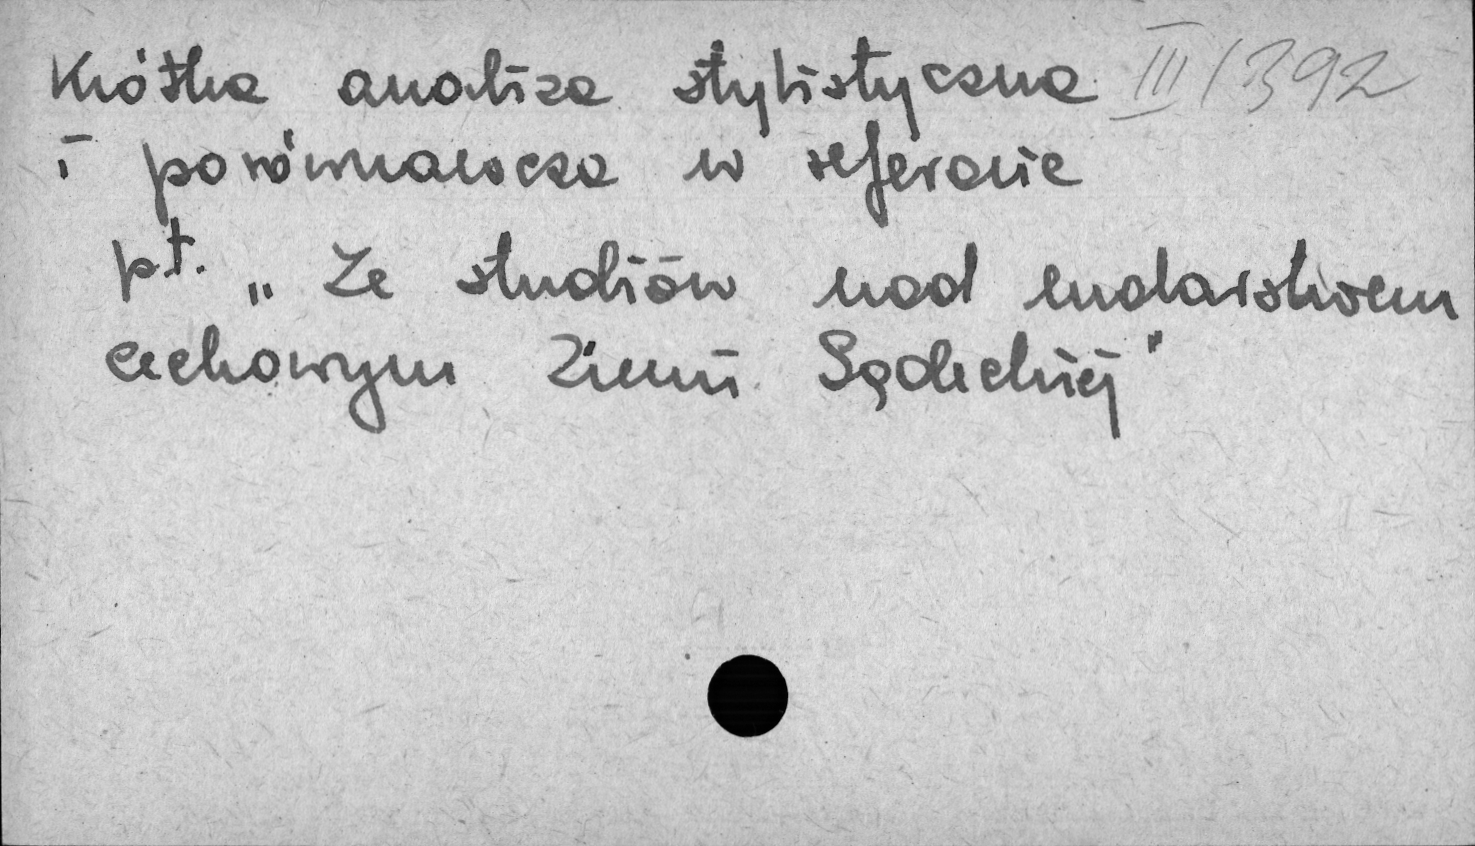 Krótka analiza stylistyczna III/392
i porównawcza w referacie
pt. „Ze studiów nad malarstwem
cechowym Ziemi Sądeckiej"